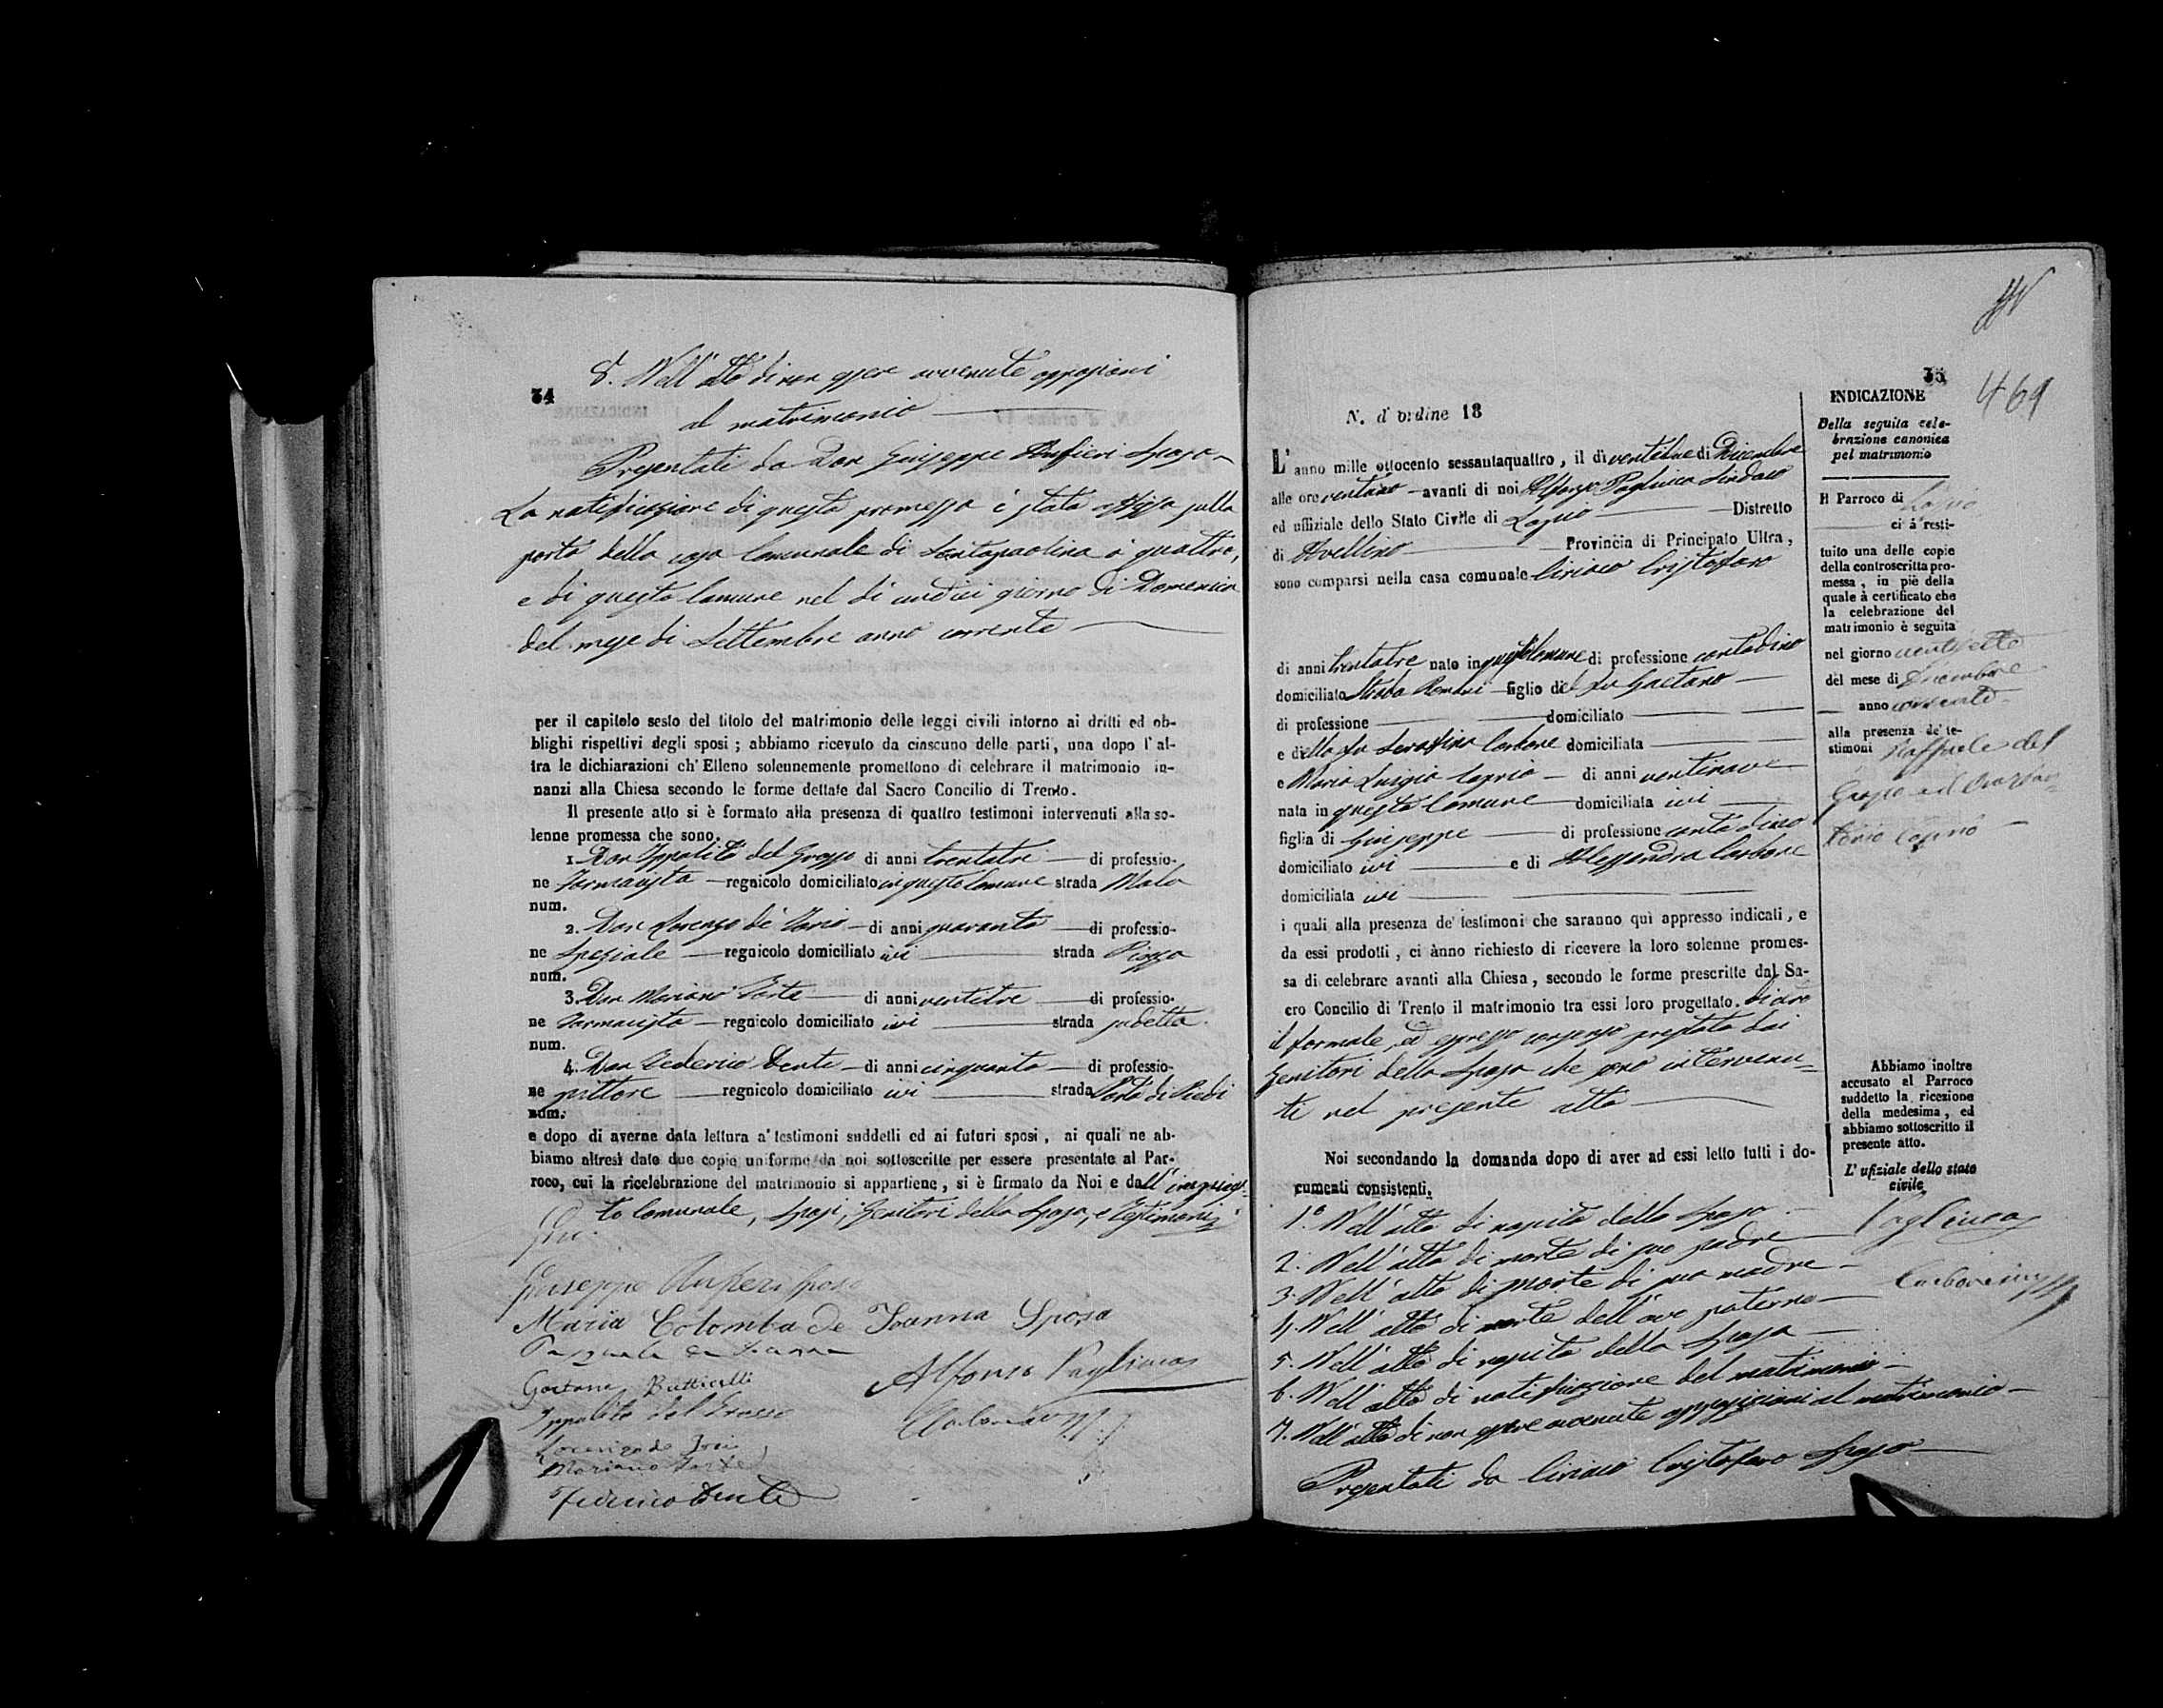 34
8. Nell'atto di non essere avvenute opposizioni
al matrimonio
Presentati da Don Giuseppe Anfieri Sposo
La notificazione di questa promessa è stata affissa sulla
porta della casa Comunale di Santapaolina a quattro,
e di questo Comune nel dì undici giorno di Domenica
del mese di Settembre anno corrente
per il capitolo sesto del titolo del matrimonio delle leggi civili intorno ai dritti ed ob-
blighi rispettivi degli sposi ; abbiamo ricevuto da ciascuno delle parti, una dopo l'al-
tra le dichiarazioni ch'Elleno solennemente promettono di celebrare il matrimonio in-
nanzi alla Chiesa secondo le forme dettate dal Sacro Concilio di Trento.
Il presente atto si è formato alla presenza di quattro testimoni intervenuti alla so-
lenne promessa che sono.
1. Don Ippolito del Grosso di anni trentatre di professio-
ne Farmacista regnicolo domiciliato in questo Comune strada Mala
num.
2. Don Lorenzo de Iorio di anni quaranta di professio-
ne Speziale regnicolo domiciliato ivi strada Piazza
num.
3. Don Mariano Forte di anni ventitre di professio-
ne Farmacista regnicolo domiciliato ivi strada
num.
4. Don Federico Dente di anni cinquanta di professio-
ne pittore regnicolo domiciliato ivi strada Porta di Piedi
num.
e dopo di averne data lettura a' testimoni suddetti ed ai futuri sposi, ai quali ne ab-
biamo altresì date due copie uniforme da noi sottoscritte per essere presentate al Par-
roco, cui la ricelebrazione del matrimonio si appartiene, si è firmato da Noi e dall'
to Comunale, Sposi, Genitori della Sposa, e Testimoni
Giuseppe Anfieri sposo
Maria Colomba de Ioanna Sposa
Pasquale de Ioanna
Gaetana Butticelli
Alfonso Pagliuca
Ippolito del Grosso
Lorenzo de Iorio
Mariano Forte
Federico Dente
35
469
N. d'ordine 18
L'anno mille ottocento sessantaquattro, il dì ventitre di Dicembre
alle ore ventuno avanti di noi Alfonso Pagliuca Sindaco
ed uffiziale dello Stato Civile di Lapio Distretto
di Avellino Provincia di Principato Ultra,
sono comparsi nella casa comunale Ciriaco Cristofaro
di anni trentatre nato in questo Comune di professione contadino
domiciliato Strada Romani figlio del fu Gaetano
di professione domiciliato
e della fu Serafina Carbone domiciliata
e Maria Luigia Caprio di anni ventinove
nata in questo Comune domiciliata ivi
figlia di Giuseppe di professione contadino
domiciliato ivi e di Alessandra Carbone
domiciliata ivi
i quali alla presenza de' testimoni che saranno quì appresso indicati, e
da essi prodotti, ci ànno richiesto di ricevere la loro solenne promes-
sa di celebrare avanti alla Chiesa, secondo le forme prescritte dal Sa-
cro Concilio di Trento il matrimonio tra essi loro progettato.
il formale, ed espresso consenso prestato dai
Genitori della Sposa che sono intervenu-
ti nel presente atto
Noi secondando la domanda dopo di aver ad essi letto tutti i do-
cumenti consistenti.
1.° Nell'atto di nascita dello Sposo
2. Nell'atto di morte di suo padre
3. Nell'atto di morte di sua madre
4. Nell'atto di morte dell'avo paterno
5. Nell'atto di nascita della Sposa
6. Nell'atto di notificazione del matrimonio
7. Nell'atto di non essere avvenute opposizioni al matrimonio
Presentati da Ciriaco Cristofaro Sposo
INDICAZIONE
Della seguita cele-
brazione canonica
pel matrimonio
Il Parroco di Lapio
ci à resti-
tuito una delle copie
della controscritta pro-
messa, in piè della
quale à certificato che
la celebrazione del
matrimonio è seguita
nel giorno ventisette
del mese di Dicembre
anno corrente
alla presenza de' te-
stimoni Raffaele del
Grosso ed
Caprio
Abbiamo inoltre
accusato al Parroco
suddetto la ricezione
della medesima, ed
abbiamo sottoscritto il
presente atto.
L'ufiziale dello stato
civile
Pagliuca